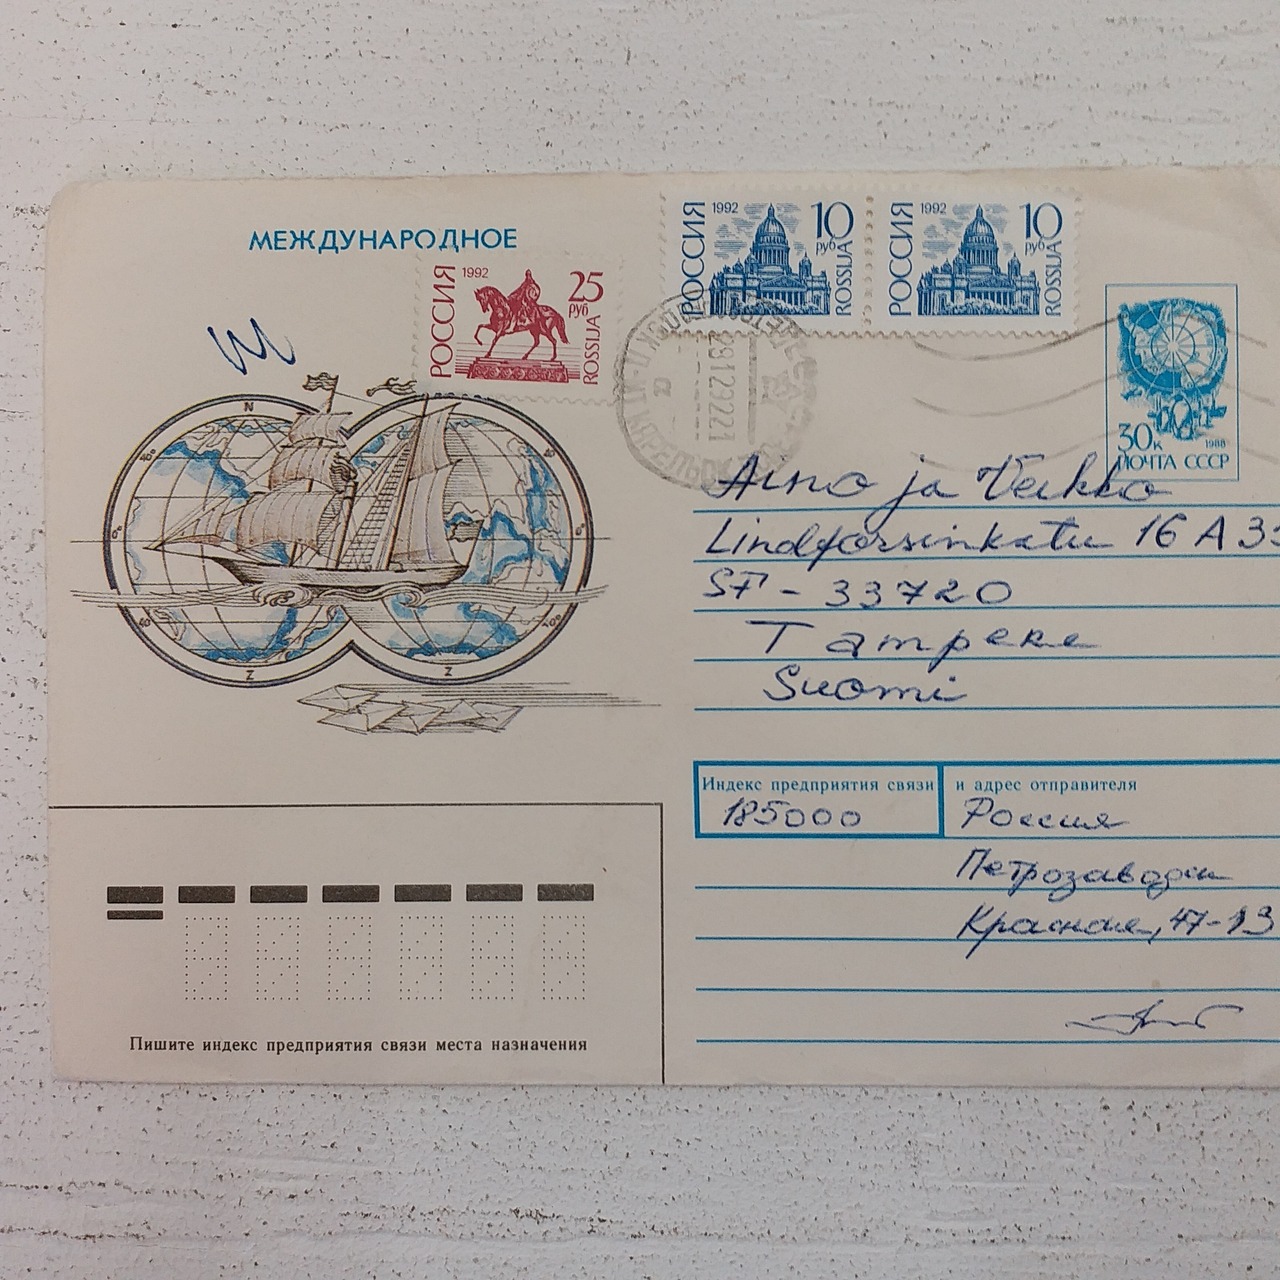 МЕЖДУНАРОДНОЕ
РОССИЯ 1992 25 руб ROSSIJA
РОССИЯ 1992 10 руб ROSSIJA
РОССИЯ 1992 10 руб ROSSIJA
30к 1988
ПОЧТА СССР
N
Z
Z
Aino ja Veikko
Lindforsinkatu 16 A 33
SF - 33720
Tampere
Suomi
Индекс предприятия связи
и адрес отправителя
185000
Россия
Петрозаводск
Красная, 47-13
Пишите индекс предприятия связи места назначения